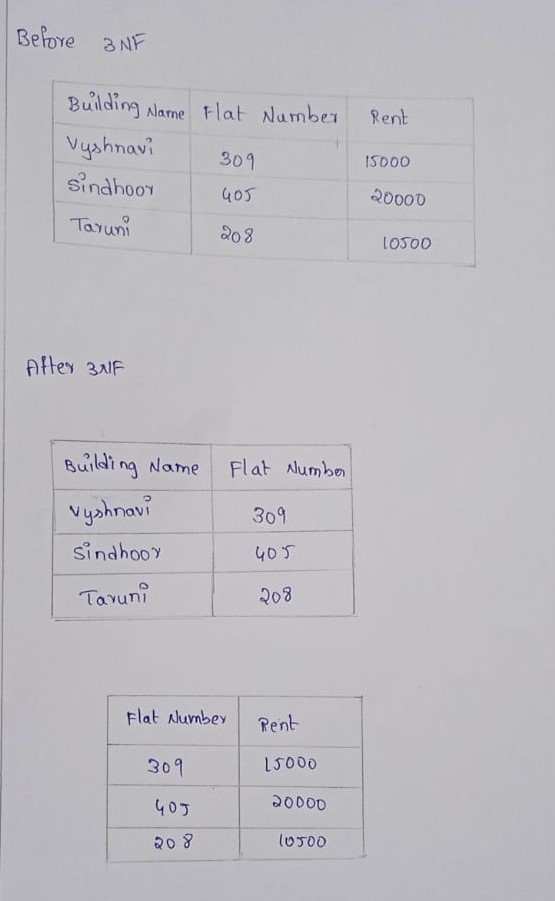 Before 3NF
Building Name Flat Number Rent
Vyshnavi 309 15000
Sindhoor 405 20000
Taruni 208 10500
After 3NF
Building Name Flat Number
Vyshnavi 309
Sindhoor 405
Taruni 208
Flat Number Rent
309 15000
405 20000
208 10500